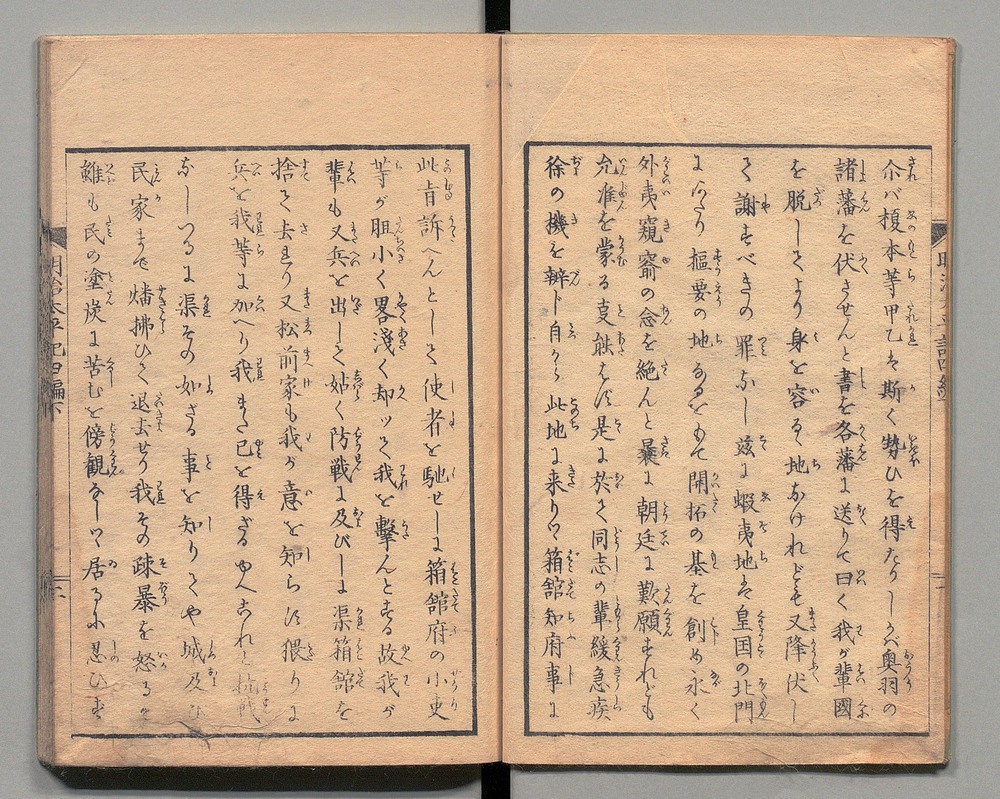 尒バ榎本等甲乙は斯く勢ひを得たりしかバ奥羽の
諸藩を伏させんと書を各藩に送りて曰く我が輩國
を脱してより身を容るゝ地なけれども又降伏し
て謝すべきの罪なし茲に蝦夷地は皇国の北門
にあたり樞要の地なるをもて開拓の基を創め永く
外夷窺窬の念を絶んと曩に朝廷に歎願すれども
允准を蒙る叓能はず是に於て同志の輩緩急疾
徐の機を辨ト自から此地に来りて箱館知府事に
此旨訴へんとして使者を馳せしに箱館府の小吏
等が胆小く畧淺く却ッて我を擊んとする故我が
輩も又兵を出して姑く防戦に及びしに渠箱館を
捨て去より又松前家も我が意を知らず猥りに
兵を我等に加へり我また已を得ざるゆへこれと抗戦
なしつるに渠その如ざる事を知りてや城及ひ
民家まで燔拂ひて退去せり我その疎暴を怒るゝ
雖も民の塗炭に苦むを傍観なして居るに忍ひず
明治太平記四編下